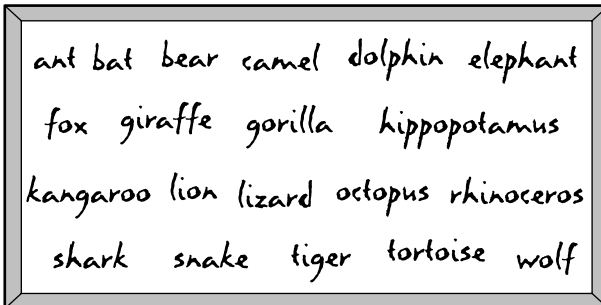 ant bat bear camel dolphin elephant
fox giraffe gorilla hippopotamus
kangaroo lion lizard octopus rhinoceros
shark snake tiger tortoise wolf